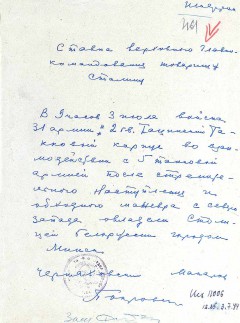 Ставка верховного Главно-
командования товарищу
Сталину
В 9 часов 3 июля войска
31 армии и 2 гв. Тацинский Тан-
ковый корпус во взаи-
модействии с 5 танковой
армией после стремите-
льного наступления и
обходного маневра с северо
запада овладели столи-
цей Белоруссии городом
Минск
Черняховский Макаров
Покровский
3.7.44